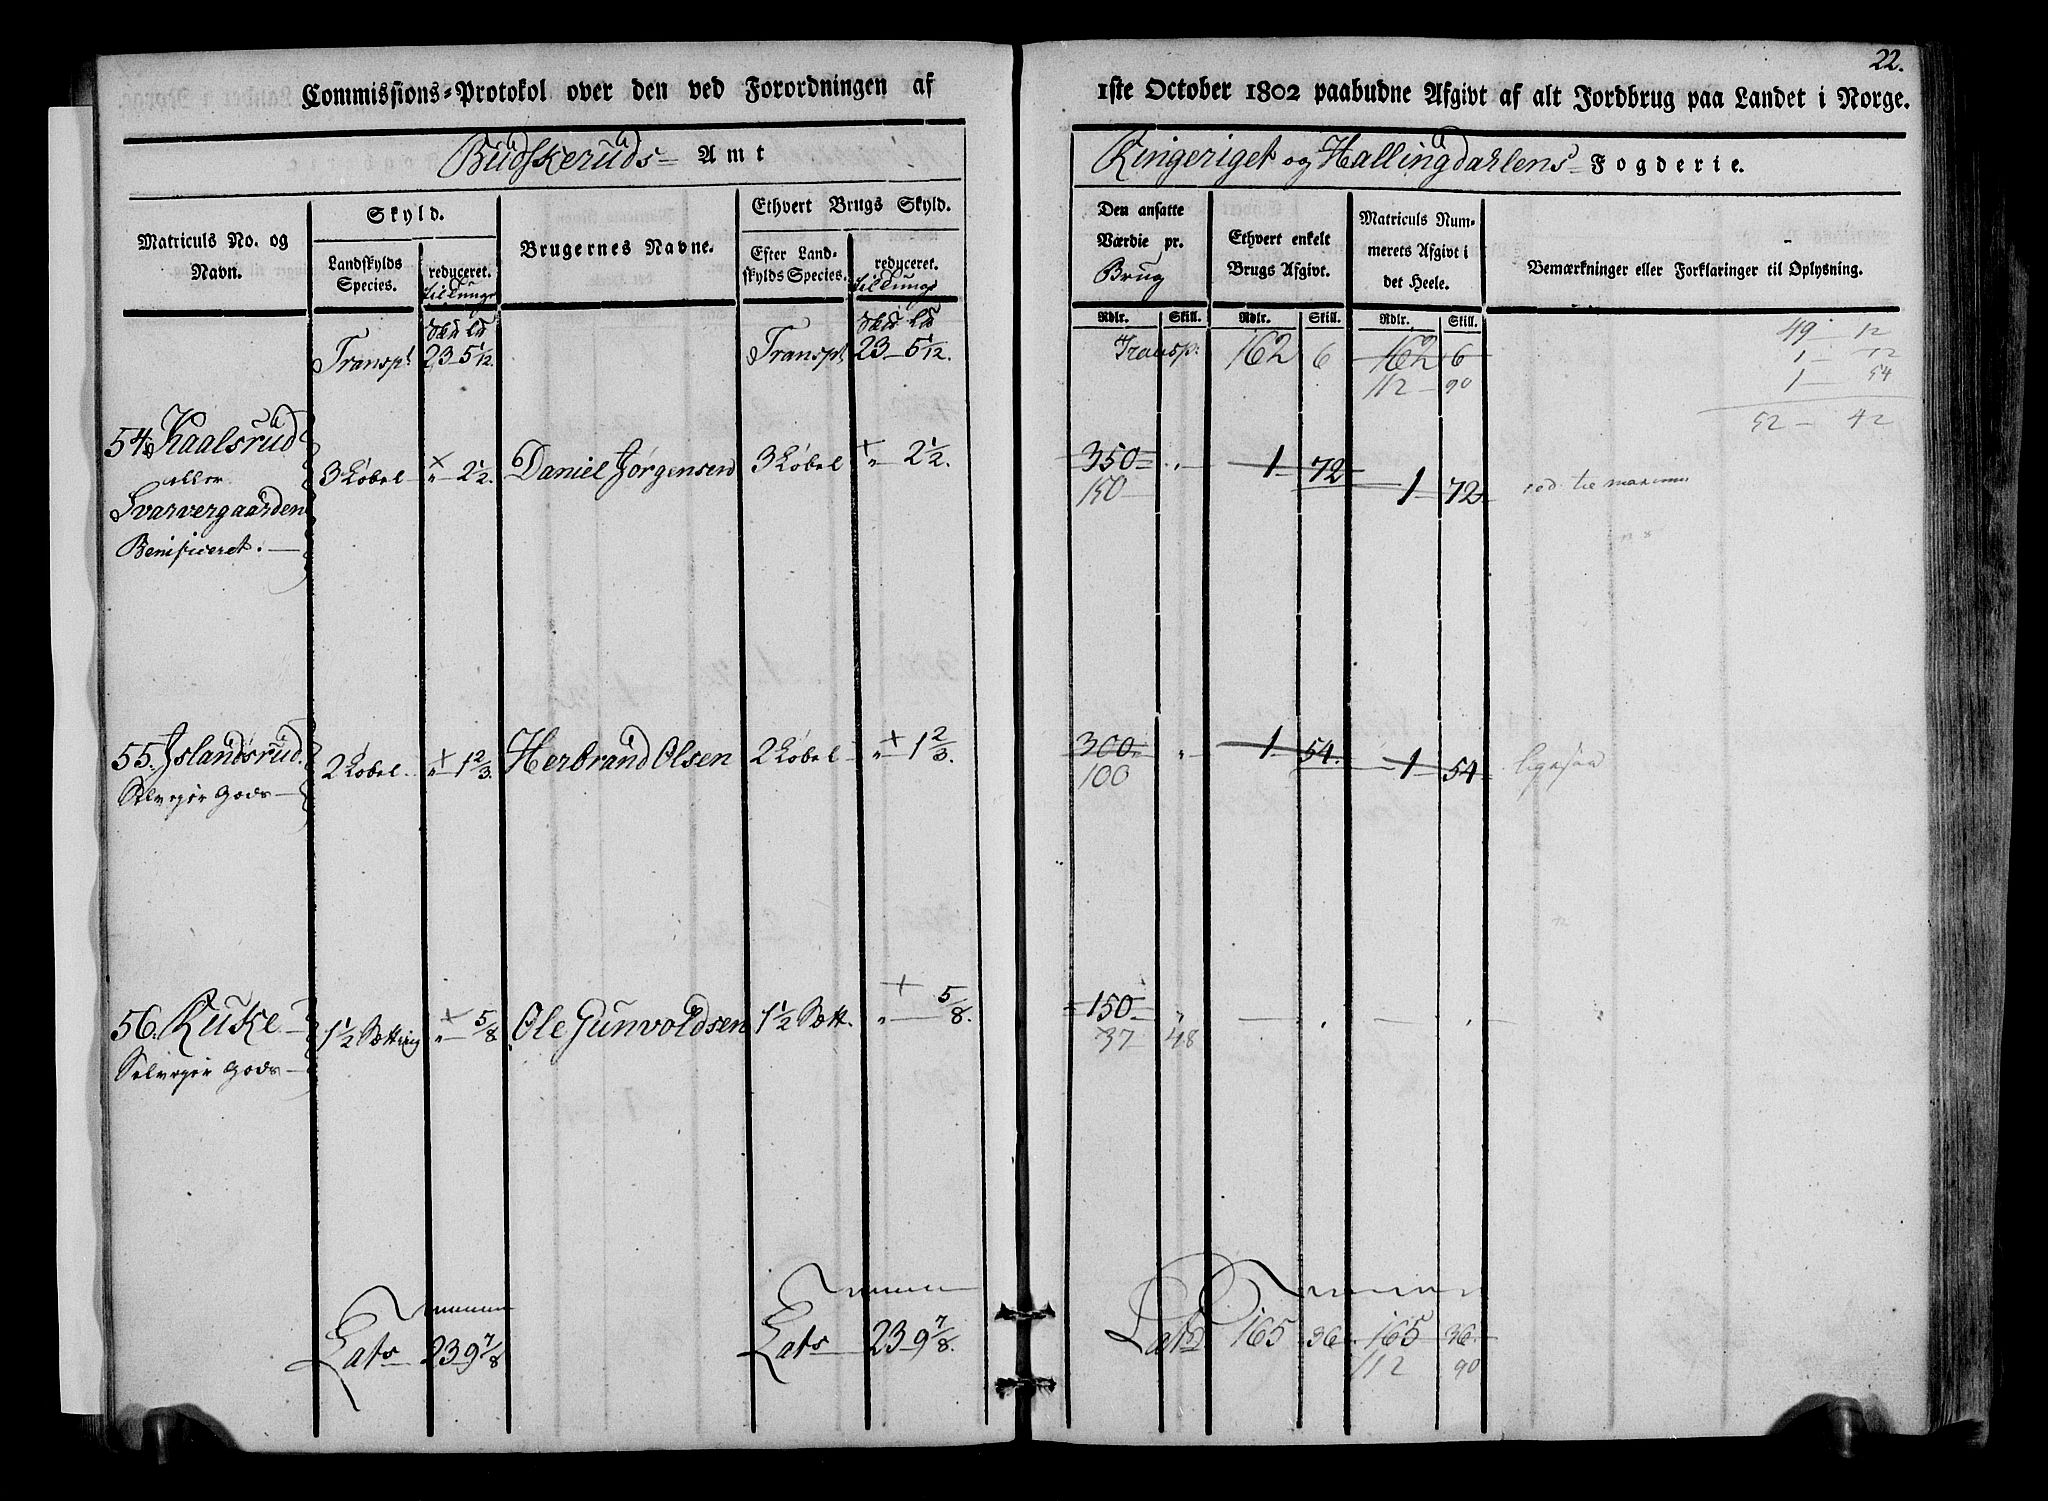 22.
Commissions-Protokol over den ved Forordningen af 1ste October 1802 paabudne Afgivt af alt Jordbrug paa Landet i Norge.
Budskeruds Amt
Ringeriget og Hallingdahlens Fogderie.
Matriculs No. og Navn.
Skyld.
Landskylds Species.
reduceret.
til Tunge
Brugernes Navne.
Ethvert Brugs Skyld.
Efter Landskylds Species.
reduceret.
til Tunge
Den ansatte Værdie pr. Brug
Ethvert enkelt Brugs Afgivt.
Matriculs Nummerets Afgivt i det Heele.
Bemærkninger eller Forklaringer til Oplysning.
Rdlr. Skill. Rdlr. Skill. Rdlr. Skill.
Skd Ld Skd Ld
Transpt 23 - 5 1/12. Transpt 23 - 5 1/12. Transp: 162 6 162 6
112 - 90
49 - 12
1 - 72
1 - 54
52 - 42
54. Kaalsrud 3 Løbel - " 2 1/2. Daniel Jørgensen 3 Løbel " 2 1/2. 350 " 1 72 1 72
eller
Svarvergaarden 150
Benificeret.
55. Islandsrud 2 Løbel. " 1 2/3. Herbrand Olsen 2 Løbel " 1 2/3. 300 " 1 54. 1 54
Selveyer Gods 100
56. Ruke 1 1/2 Sætting " 5/8 Ole Gunvoldsen 1 1/2 Sætt. " 5/8. 150 "
Selveyer Gods 37 48
Lats 23 9 7/8 Lats 23 9 7/8. Lats 165 36 165 36
112 90